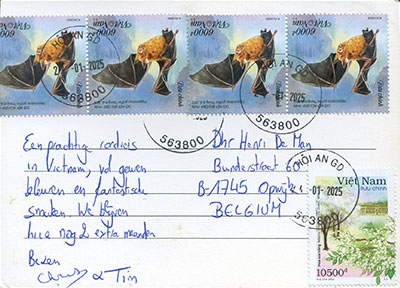 Việt Nam
6000đ
Việt Nam
6000đ
Việt Nam
6000đ
Việt Nam
6000đ
HỘI AN GD
-01-2025
563800
HỘI AN GD
-01-2025
563800
563800
Een prachtige rondreis
in Vietnam, vol geuren
kleuren en fantastische
smaken. We blijven
hier nog 2 extra maanden
Beden
& Tim
Dhr Henri De Man
Bunderstraat 60
B-1745 Opwijk
BELGIUM
HỘI AN GD
-01-2025
563800
Việt Nam
BƯU CHÍNH
10500đ